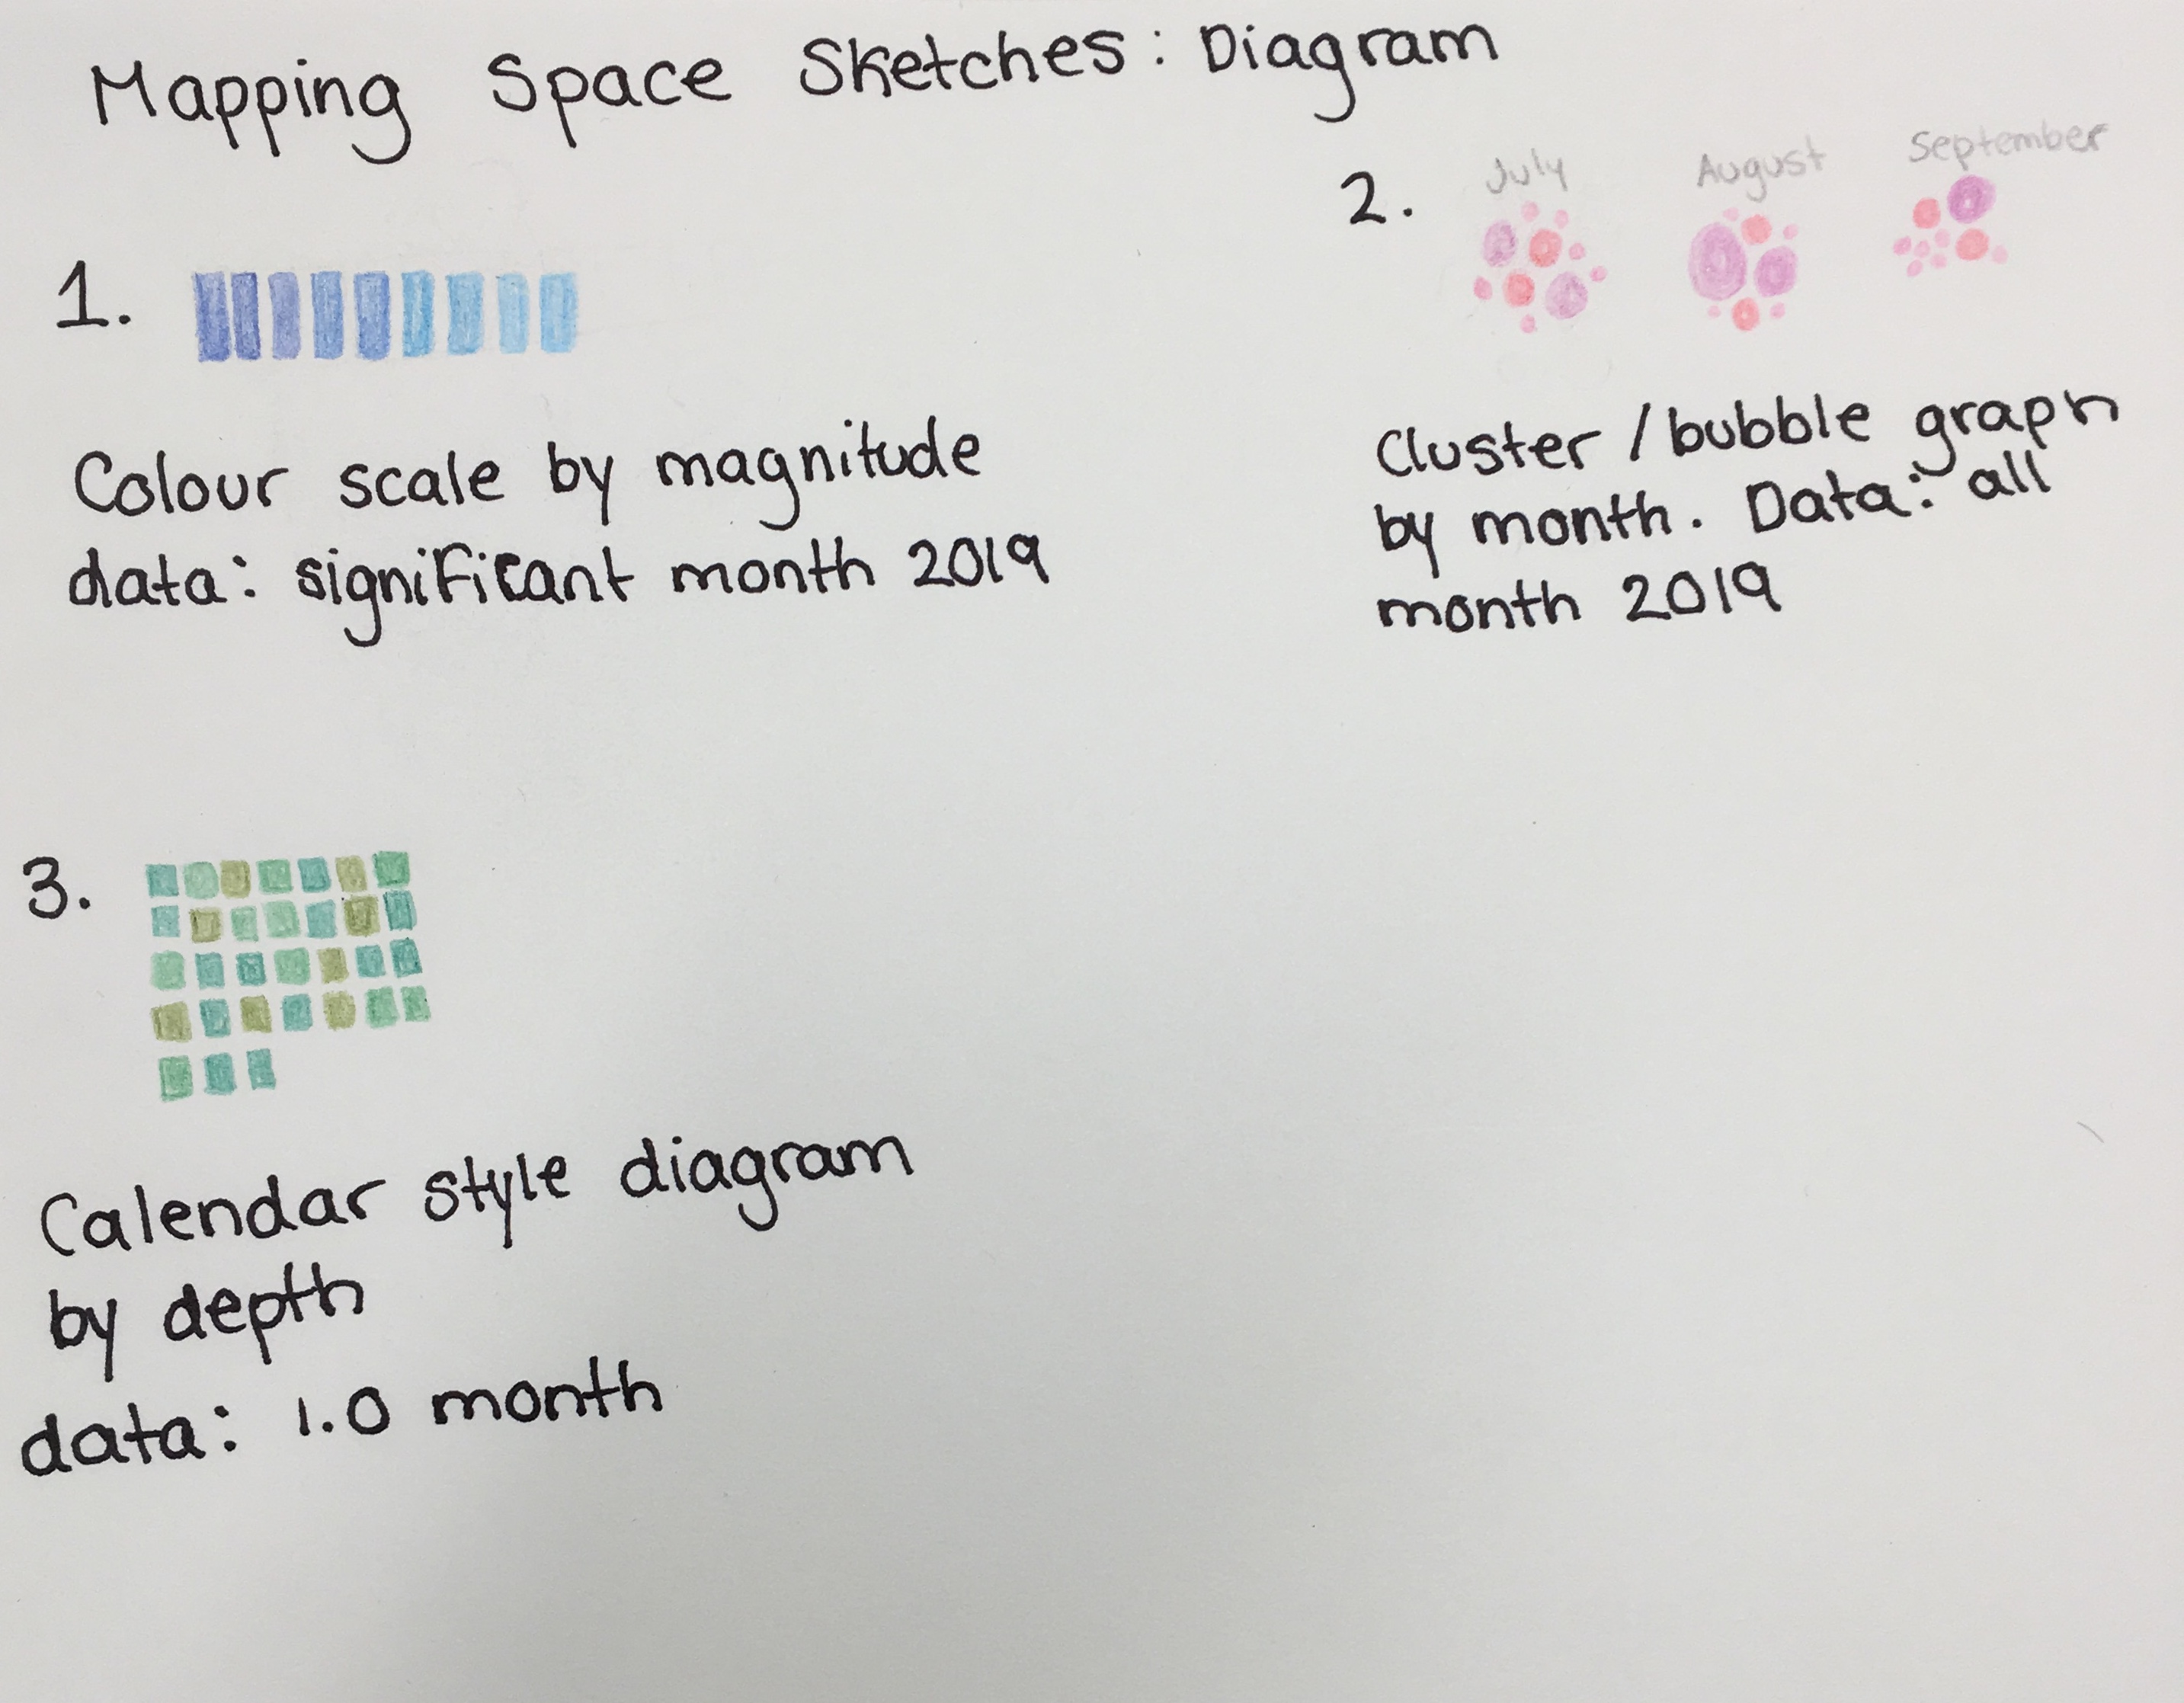 Mapping Space Sketches: Diagram
1.
Colour scale by magnitude
data: significant month 2019
2.
July August September
Cluster / bubble graph
by month. Data: all
month 2019
3.
Calendar style diagram
by depth
data: 1.0 month